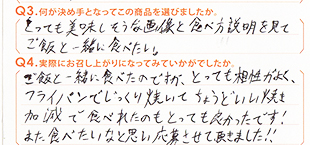 Q3.何が決め手となってこの商品を選びましたか。
とっても美味しそうな画像と食べ方説明を見て
ご飯と一緒に食べたい。
Q4.実際にお召し上がりになってみていかがでしたか。
ご飯と一緒に食べたのですが、とっても相性がよく、
フライパンでじっくり焼いてちょうどいい焼き
加減で食べれたのもとっても良かったです!
また食べたいなと思い応募させて頂きました!!